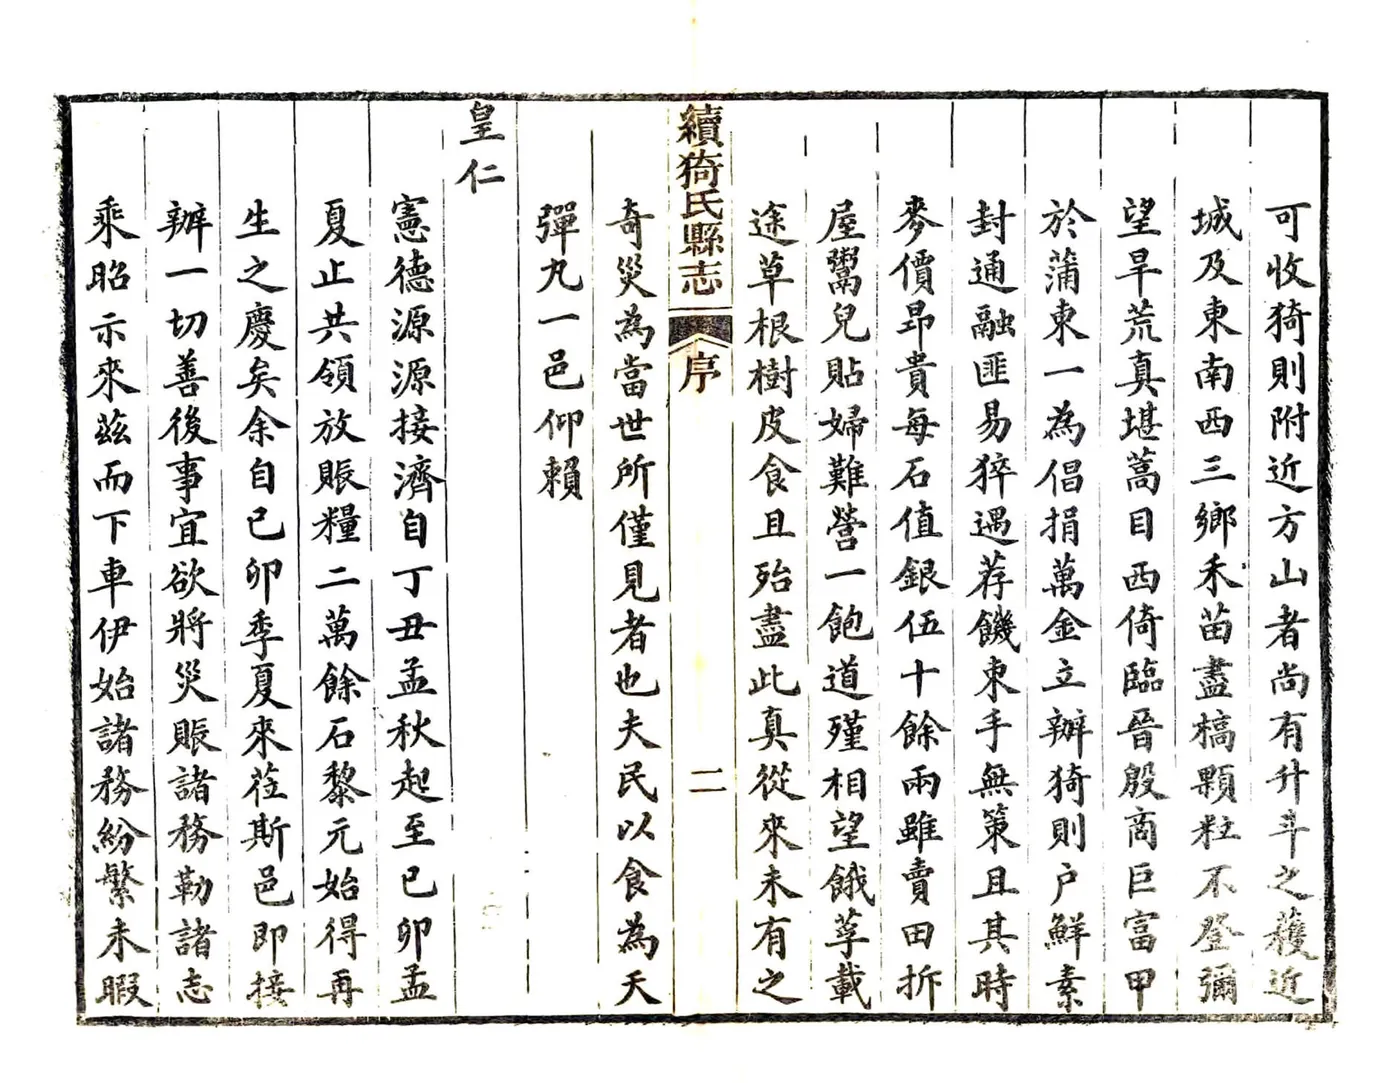 可收猗則附近方山者尚有升斗之穫近
城及東南西三鄉禾苗盡槁顆粒不登彌
望旱荒真堪蒿目西倚臨晉殷商巨富甲
於蒲東一為倡捐萬金立辦猗則户鮮素
封通融匪易猝遇荐饑束手無策且其時
麥價昂貴每石值銀伍十餘兩雖賣田折
屋鬻兒貼婦難營一飽道殣相望餓莩載
途草根樹皮食且殆盡此真從來未有之
續猗氏縣志 序 二
奇災為當世所僅見者也夫民以食為天
彈丸一邑仰賴
皇仁
憲德源源接濟自丁丑孟秋起至己卯孟
夏止共領放賑糧二萬餘石黎元始得再
生之慶矣余自己卯季夏來莅斯邑即接
辦一切善後事宜欲將災賑諸務勒諸志
乘昭示來茲而下車伊始諸務紛繁未暇